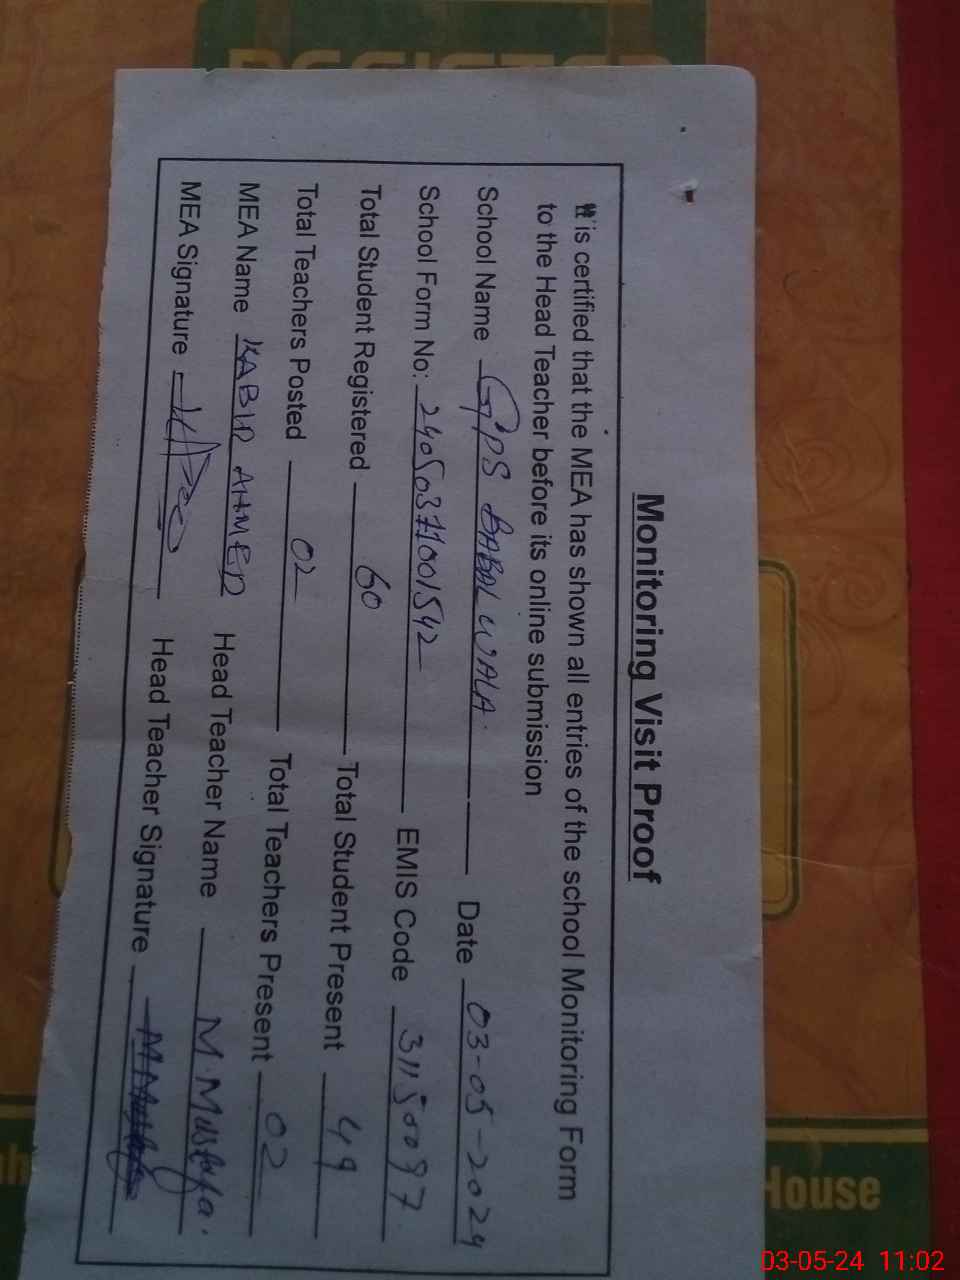 REGISTER
Monitoring Visit Proof
It is certified that the MEA has shown all entries of the school Monitoring Form
to the Head Teacher before its online submission
School Name GPS BABAL WALA Date 03-05-2024
School Form No: 24050371001542 EMIS Code 31150097
Total Student Registered 60 Total Student Present 49
Total Teachers Posted 02 Total Teachers Present 02
MEA Name KABIR AHMED Head Teacher Name M. Mustafa.
MEA Signature Head Teacher Signature
House
03-05-24 11:02